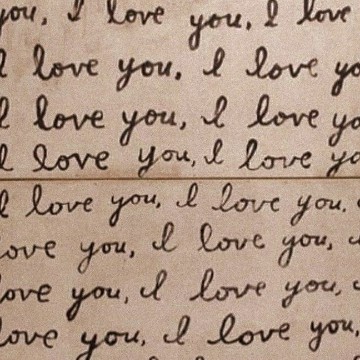 you, I love you, I love
I love you, I love yo
I love you, I love yo
I love you, I love yo
I love you, I love you,
love you, I love you,
love you, I love you,
love you, I love you,